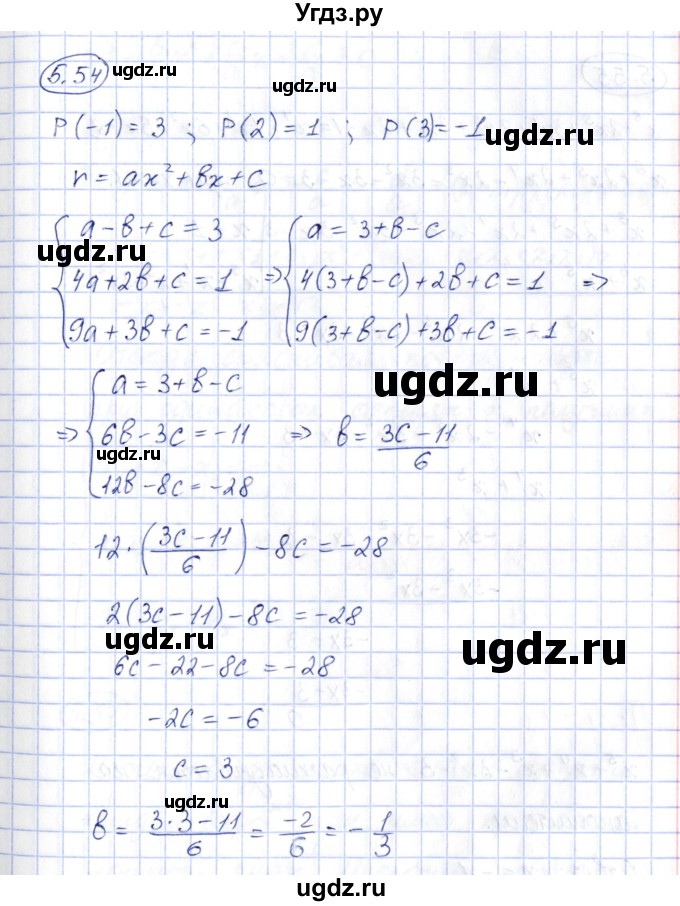 Угдз.ру
5.54 ugdz.ru
ugdz.ru
P(-1) = 3 ; P(2) = 1 ; P(3) = -1
ugdz.ru
r = ax² + bx + c
{ a - b + c = 3 { a = 3 + b - c
ugdz.ru
4a + 2b + c = 1 => 4(3 + b - c) + 2b + c = 1 =>
9a + 3b + c = -1 9(3 + b - c) + 3b + c = -1
ugdz.ru
=> { a = 3 + b - c
6b - 3c = -11 => b = (3c - 11)/6
ugdz.ru
12b - 8c = -28
12 · ((3c - 11)/6) - 8c = -28
2(3c - 11) - 8c = -28
ugdz.ru
ugdz.ru
6c - 22 - 8c = -28
-2c = -6
c = 3
ugdz.ru
b = (3·3 - 11)/6 = -2/6 = -1/3
ugdz.ru